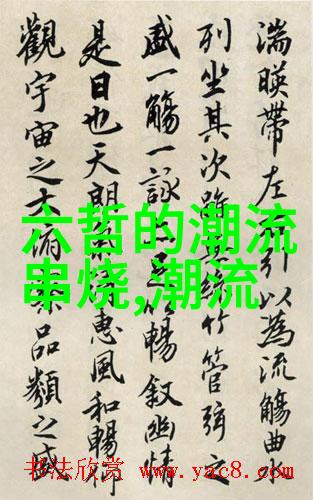 湍暎帶左引以為流觴曲
列坐其次雖竹管弦之
盛一觴一詠暢敘幽情
是日也天朗惠風和暢仰
觀宇宙之大俯品類之盛
六哲的潮流
串烧,潮流
书法欣赏 www.yac8.com